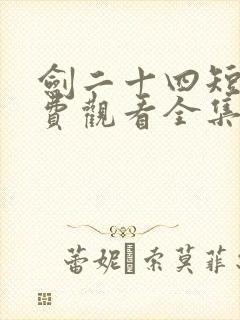 劍二十四短
費觀看全集
蕾妮·索莫菲